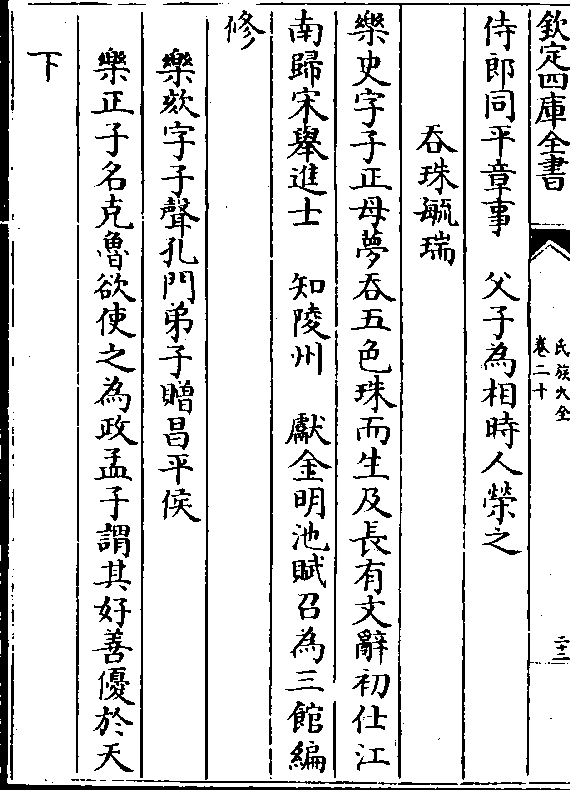 欽定四庫全書
氏族大全
卷二十
二十二
侍郎同平章事　父子為相時人榮之
吞珠毓瑞
樂史字子正母夢吞五色珠而生及長有文辭初仕江
南歸宋舉進士　知陵州　獻金明池賦召為三館編
修
樂欬字子聲孔門弟子贈昌平侯
樂正子名克魯欲使之為政孟子謂其好善優於天
下